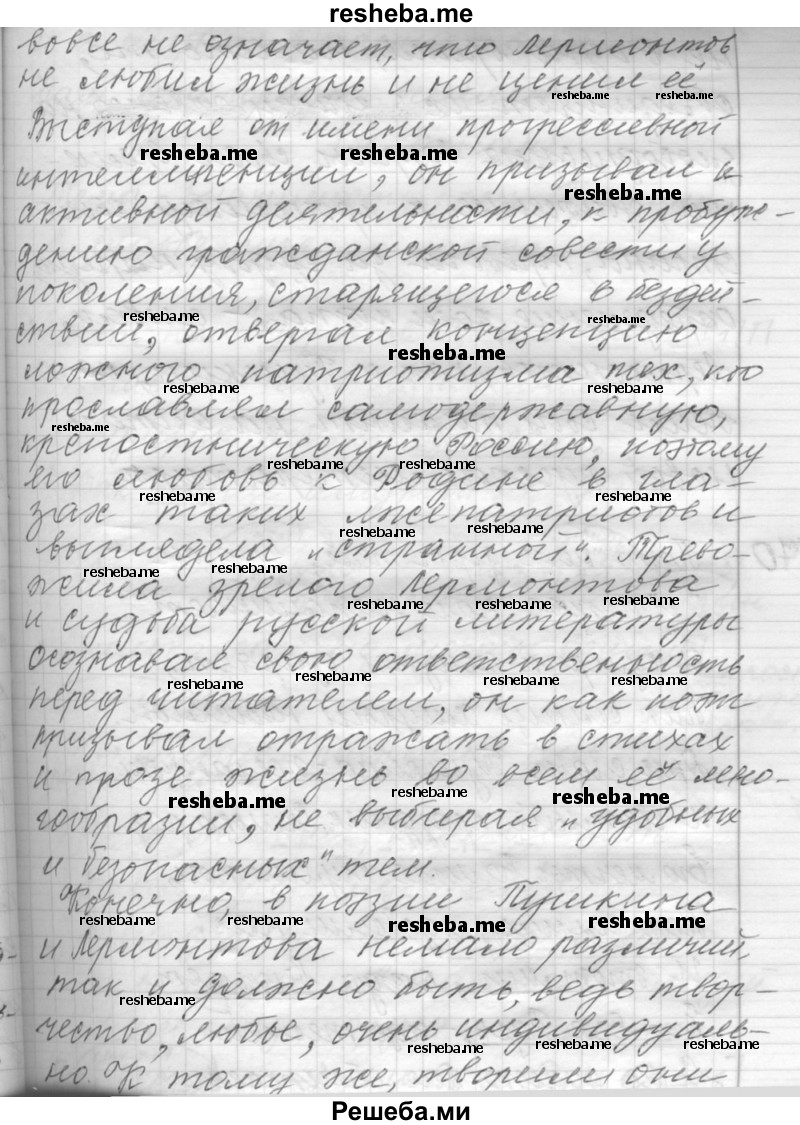 resheba.me
вовсе не означает, что Лермонтов
не любил жизнь и не ценил её
resheba.me resheba.me
Выступая от имени прогрессивной
resheba.me resheba.me
интеллигенции, он призывал к
resheba.me
активной деятельности, к пробуж-
дению гражданской совести у
поколения, старящегося в бездей-
resheba.me
ствии, отвергал концепцию
resheba.me
ложного патриотизма тех, кто
resheba.me resheba.me
прославлял самодержавную,
resheba.me
крепостническую Россию, поэтому
resheba.me resheba.me
его любовь к Родине в гла-
resheba.me resheba.me
зах таких лжепатриотов и
resheba.me resheba.me
выглядела "странной". Трево-
resheba.me resheba.me
жила зрелого Лермонтова
resheba.me resheba.me resheba.me
и судьба русской литературы
Осознавал свою ответственность
resheba.me resheba.me resheba.me resheba.me
перед читателем, он как поэт
призывал отражать в стихах
и прозе жизнь во всем её мно-
resheba.me resheba.me resheba.me
гообразии, не выбирая "удобных
и безопасных" тем.
Конечно, в поэзии Пушкина
resheba.me resheba.me resheba.me resheba.me
и Лермонтова немало различий,
так и должно быть, ведь твор-
resheba.me
чество, любое, очень индивидуаль-
resheba.me resheba.me resheba.me
но. К тому же, творили они
Решеба.ми